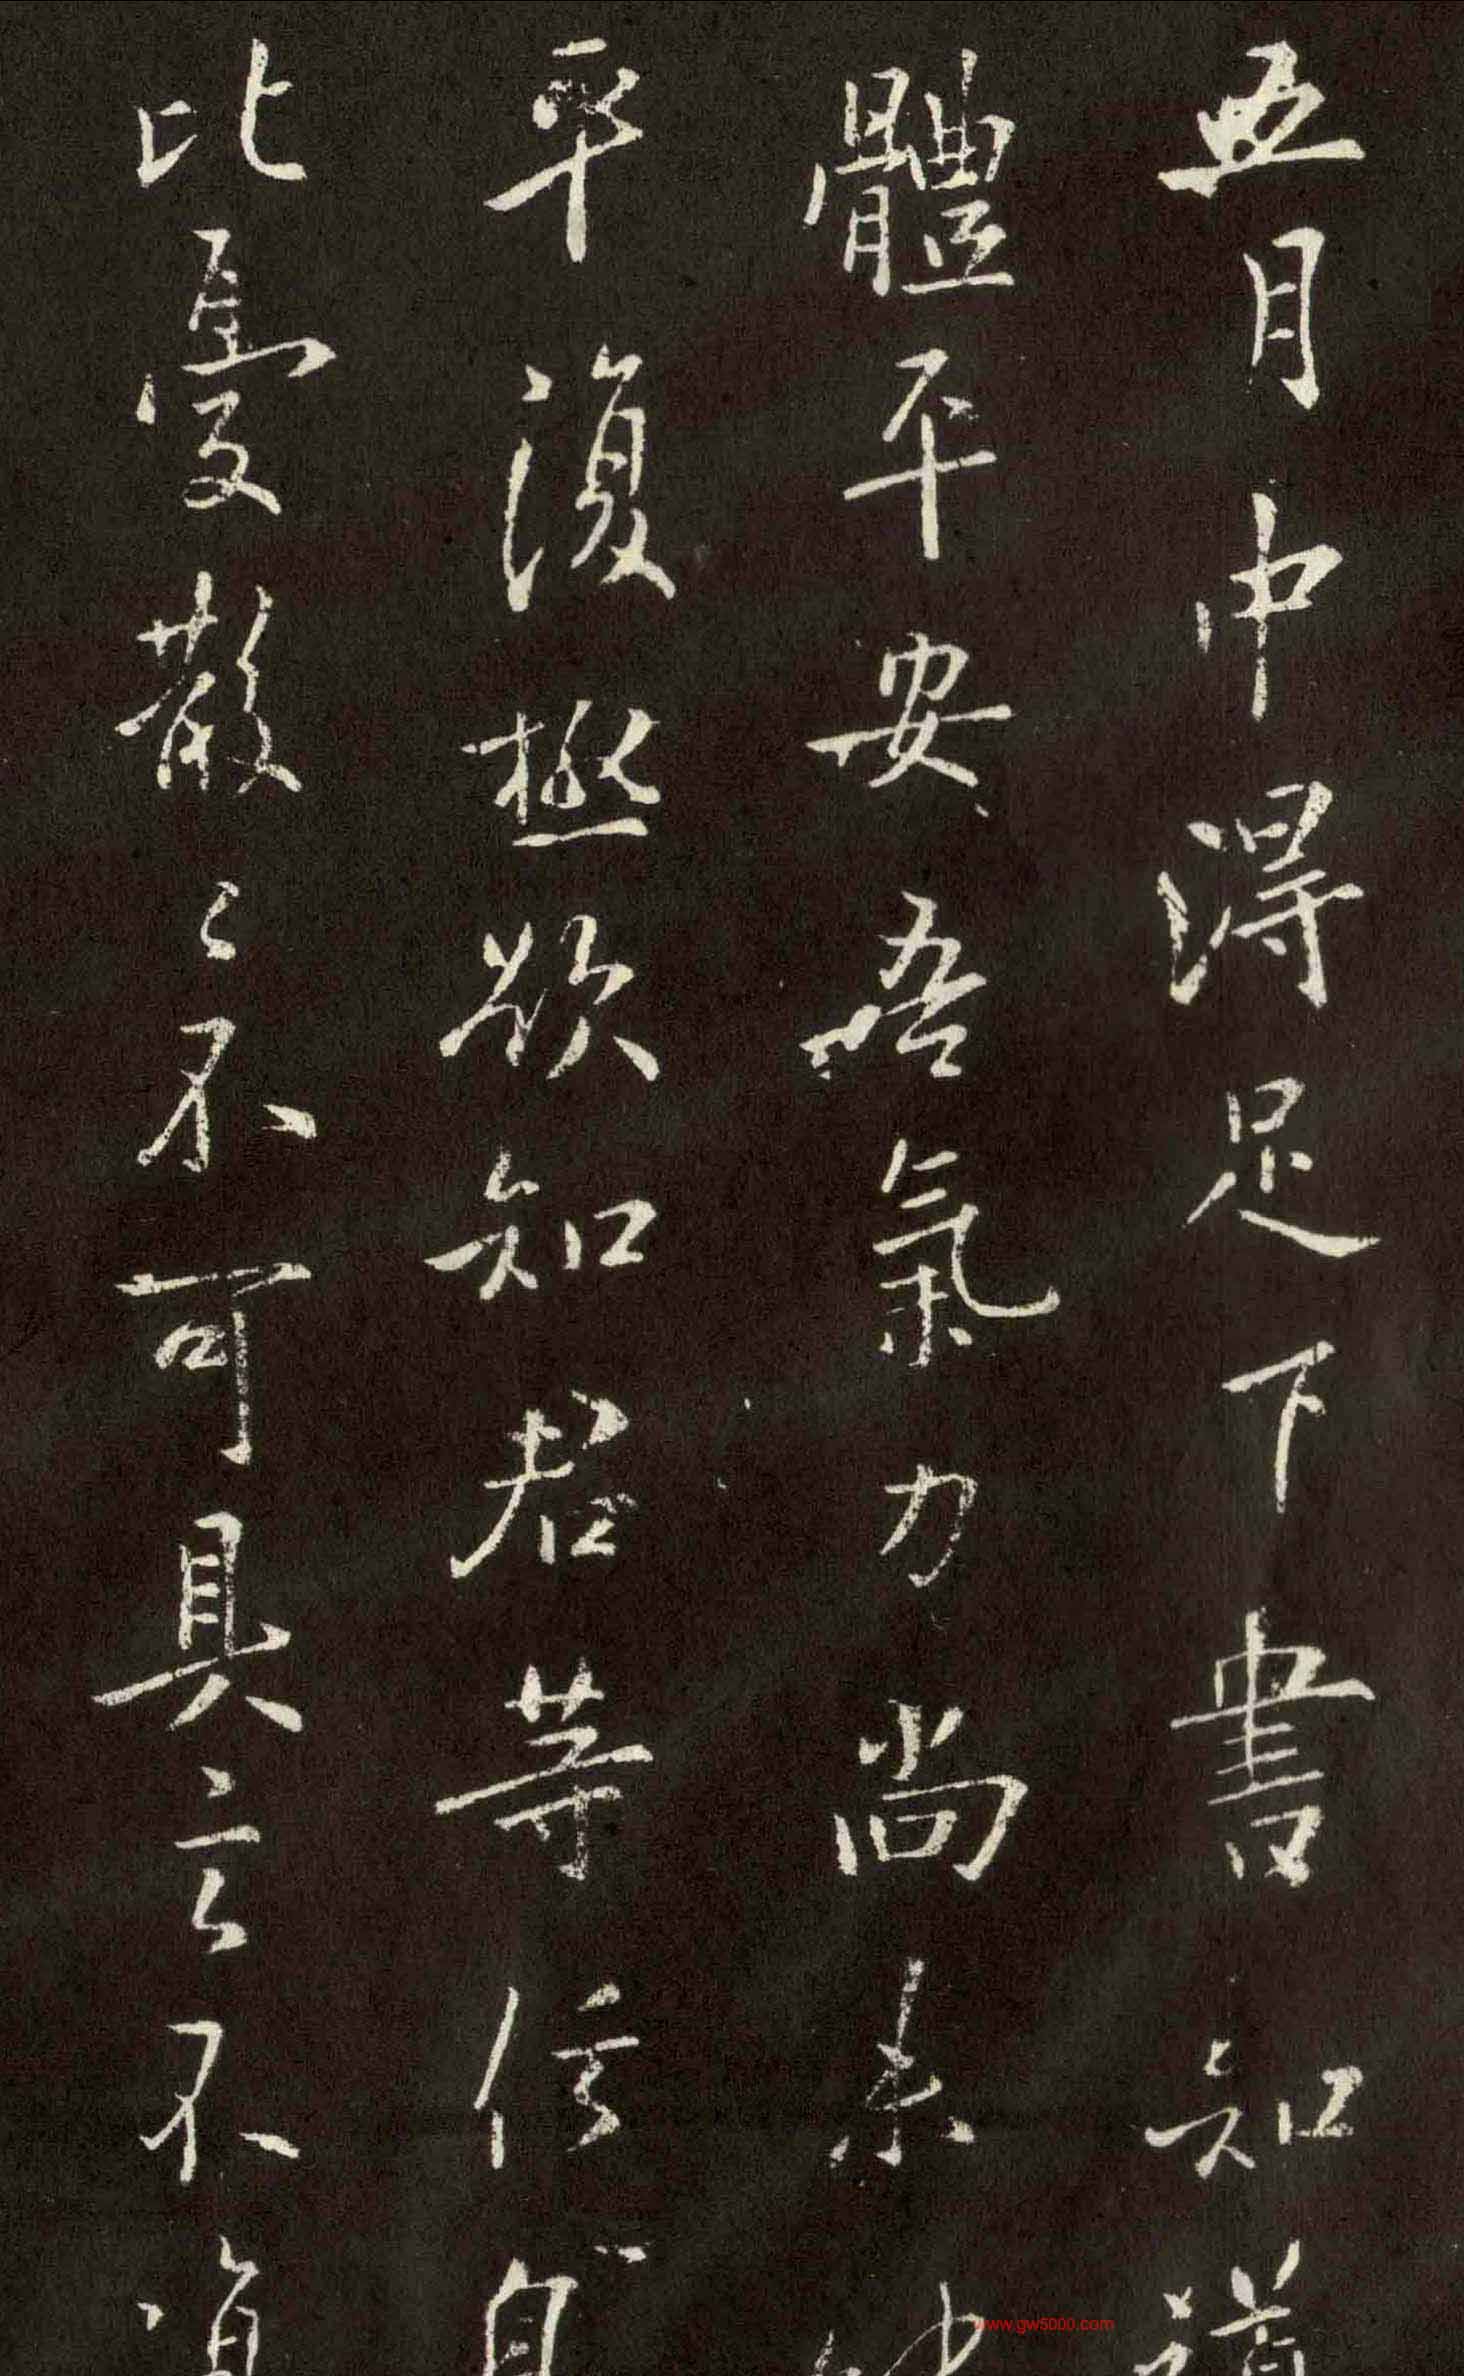 五月中得足下書知道
體平安吾氣力尚未
平復極欲知君等信息
比憂散々不可具言不復
www.gw5000.com